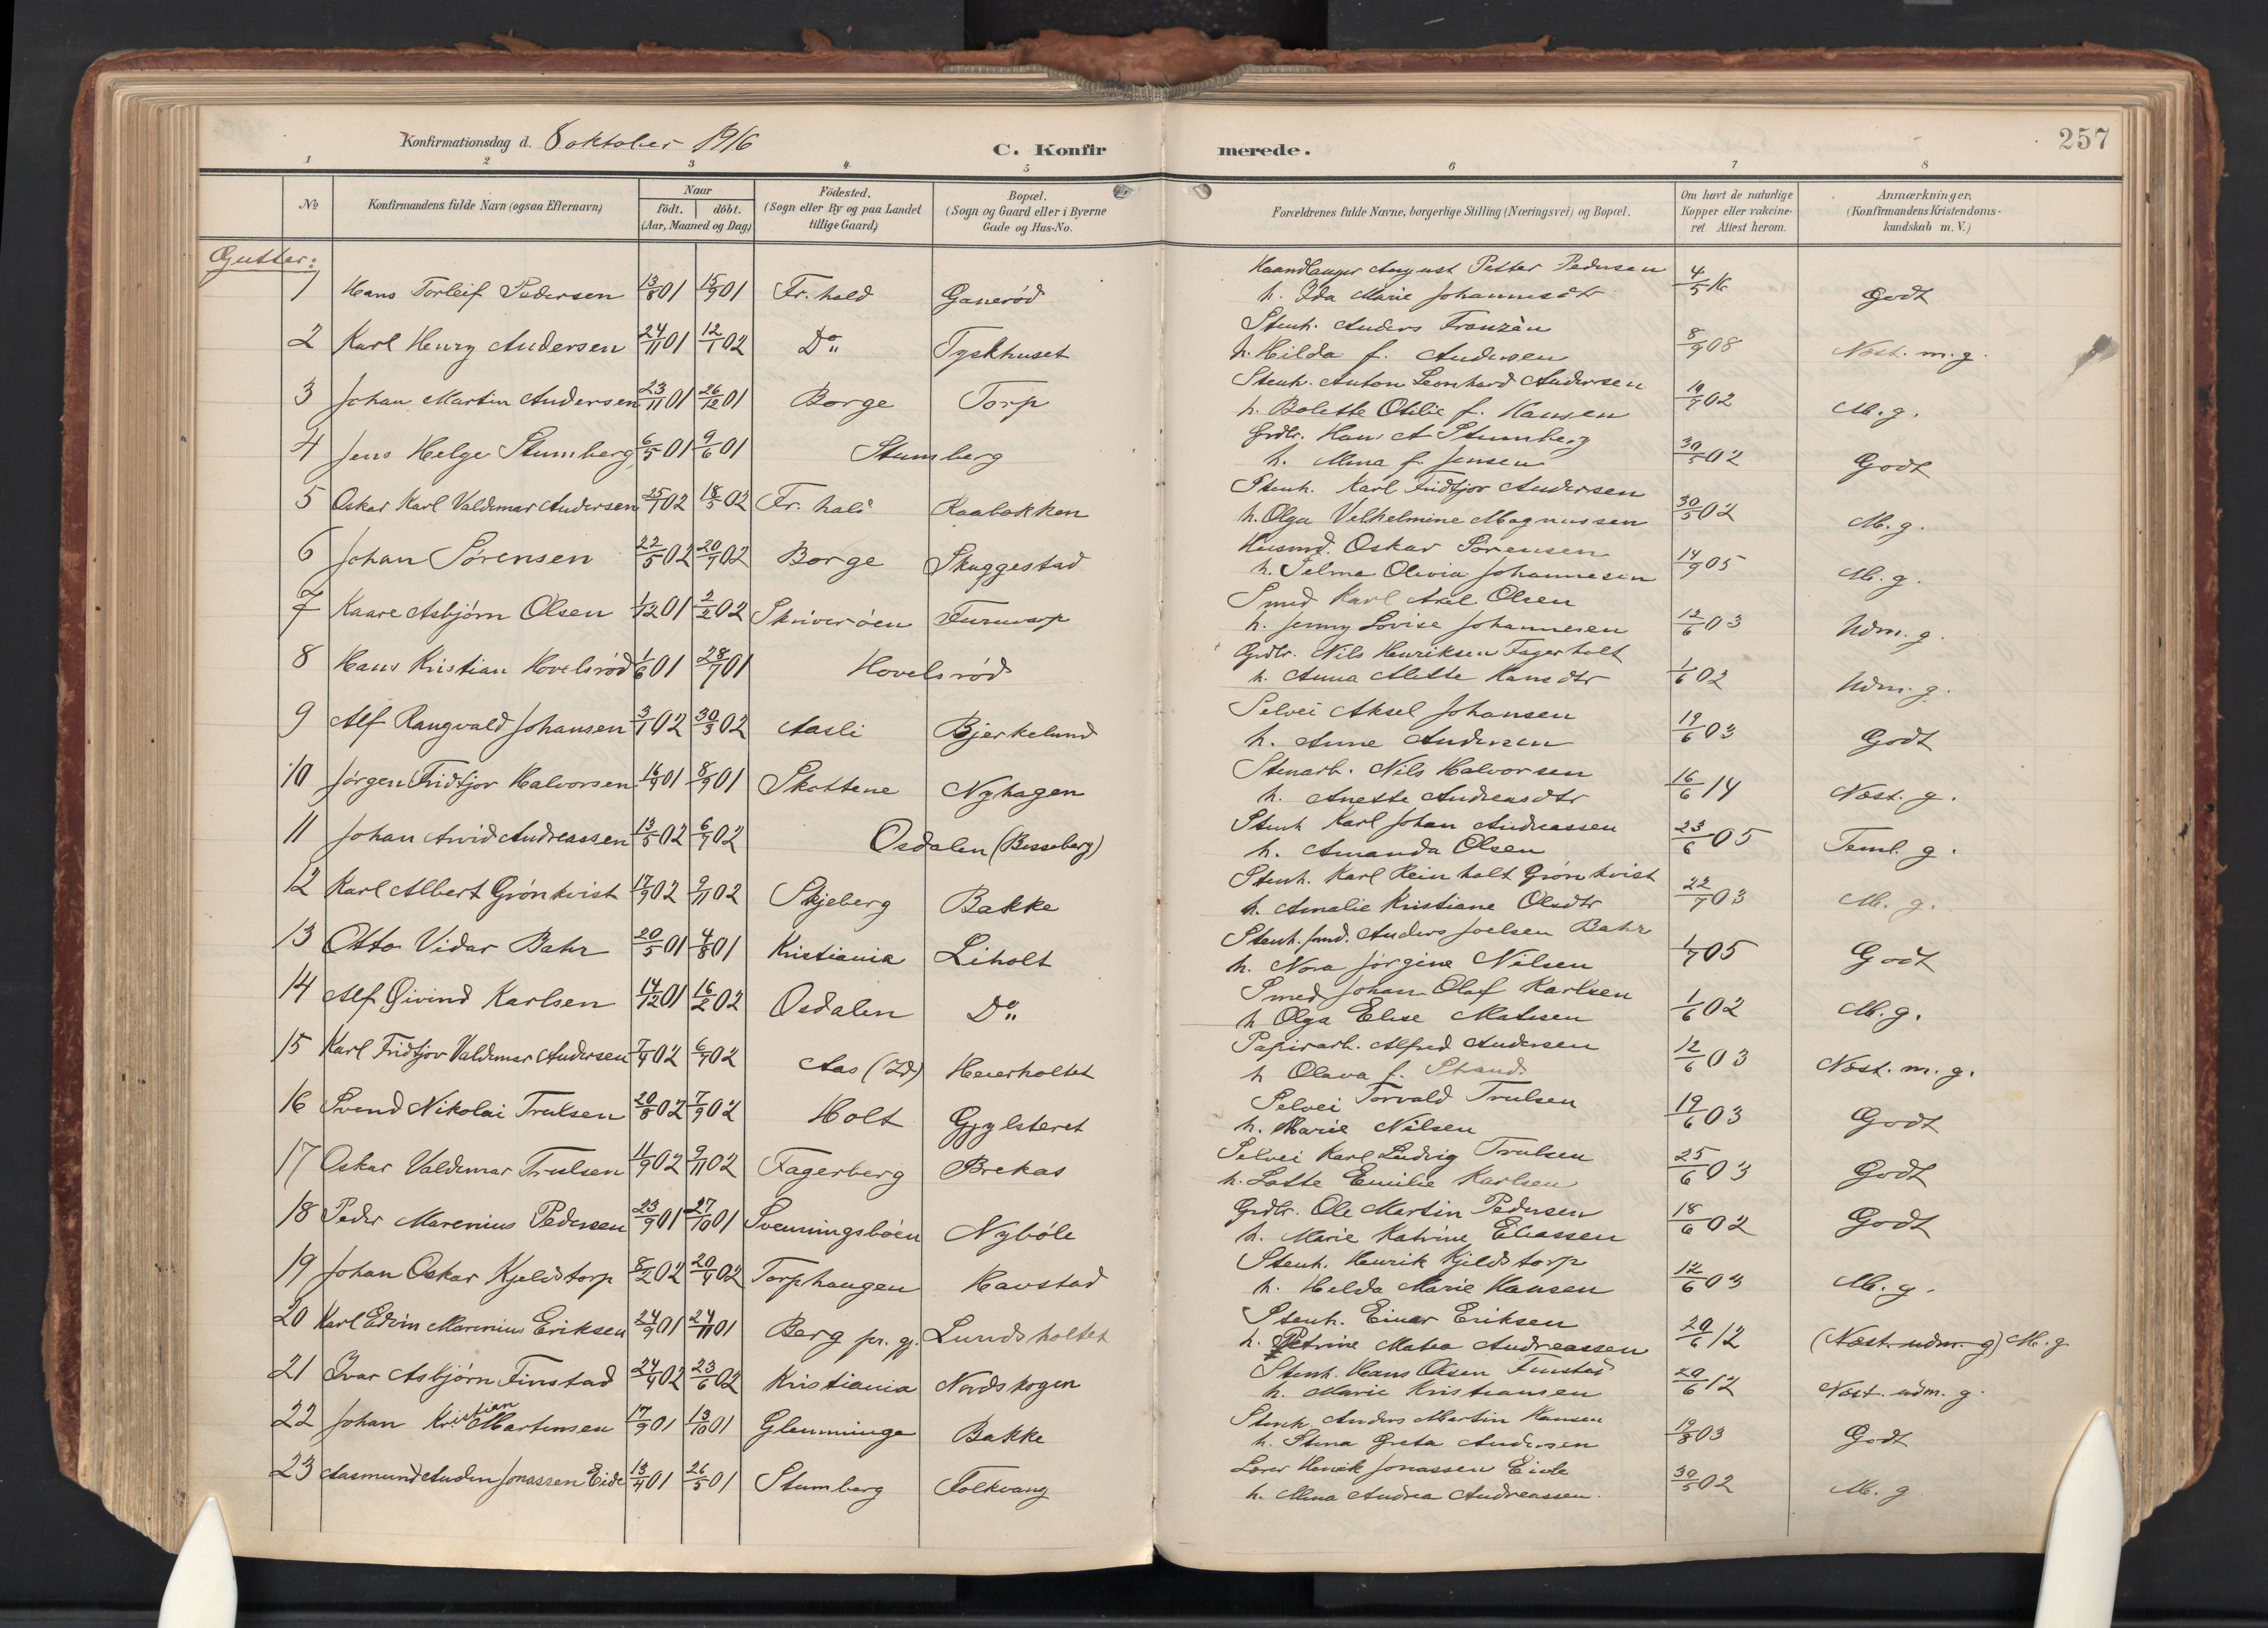 257
Konfirmationsdag d. 8 oktober 1916
C. Konfirmerede.
1 2 3 4 5 6 7 8
No
Konfirmandens fulde Navn (ogsaa Efternavn)
Naar
født. | döbt.
(Aar, Maaned og Dag)
Födested.
(Sogn eller By og paa Landet
tillige Gaard)
Bopæl.
(Sogn og Gaard eller i Byerne
Gade og Hus-No.
Forældrenes fulde Navne, borgerlige Stilling (Næringsvei) og Bopæl.
Om havt de naturlige
Kopper eller vakcine-
ret. Attest herom.
Anmærkninger.
(Konfirmandens Kristendoms-
kundskab m. V.)
Gutter:
1 Hans Torleif Pedersen 13/8 01 15/9 01 Fr. hald Ganerød Haandlanger August Petter Pedersen 4/5 16 Godt
h. Ida Marie Johannesdtr
2 Karl Henry Andersen 24/11 01 12/1 02 Do Tyskhuset Stenh. Anders Franzèn 8/9 08 Næst. m. g.
h. Hilda f. Andersen
3 Johan Martin Andersen 23/11 01 26/12 01 Borge Torp Stenh. Anton Leonhard Andersen 19/9 02 M. g.
h. Bolette Otilie f. Hansen
4 Jens Helge Stumberg 6/5 01 9/6 01 Stumberg Grdbr. Hans A Stumberg 30/5 02 Godt
h. Mina f. Jensen
5 Oskar Karl Valdemar Andersen 25/1 02 18/5 02 Fr. hald Raabækken Stenh. Karl Fridtjov Andersen 30/5 02 M. g.
h. Olga Velhelmine Magnussen
6 Johan Sørensen 22/5 02 20/7 02 Borge Skuggestad Husmd. Oskar Sørensen 14/9 05 M. g.
h. Selma Olivia Johannesen
7 Kaare Asbjørn Olsen 1/12 01 2/2 02 Skriverøen Furutorp Smed Karl Axel Olsen 12/6 03 Udm. g.
h. Jenny Lovise Johannesen
8 Hans Kristian Hovelsrød 1/6 01 28/7 01 Hovelsrød Grdbr. Nils Henriksen Fagerholt 1/6 02 Udm. g.
h. Anna Alette Hansdtr
9 Alf Rangvald Johansen 3/1 02 30/3 02 Aasli Bjerkelund Selvei Aksel Johansen 19/6 03 Godt
h. Anne Andersen
10 Jørgen Fridtjov Halvorsen 16/7 01 8/9 01 Skottene Nyhagen Stenarb. Nils Halvorsen 16/6 14 Næst. g.
h. Anette Andreasdtr
11 Johan Arvid Andreassen 13/5 02 6/7 02 Osdalen (Besseberg) Stenh Karl Johan Andreassen 23/6 05 Teml. g.
h. Amanda Olsen
12 Karl Albert Grönkvist 17/9 02 9/11 02 Skjeberg Bakke Stenh. Karl Reinholt Grønkvist 22/7 03 M. g.
h. Amalie Kristiane Olsdtr
13 Otto Vidar Bahr 20/5 01 4/8 01 Kristiania Liholt Stenh. fmd. Anders Joelsen Bahr 1/7 05 Godt
h. Nora Jørgine Nilsen
14 Alf Øivind Karlsen 14/12 01 16/2 02 Osdalen Do Smed Johan Olaf Karlsen 1/6 02 M. g.
h Olga Elise Matisen
15 Karl Fridtjov Valdemar Andersen 7/4 02 6/7 02 Aas (Id) Heierholtet Papirarb. Alfred Andersen 12/6 03 Næst. m. g.
h Olava f. Strand
16 Svend Nikolai Trulsen 20/8 02 7/9 02 Holt Gjylsteret Selvei Torvald Trulsen 19/6 03 Godt
h. Marie Nilsen
17 Oskar Valdemar Trulsen 11/9 02 9/11 02 Fagerberg Brekas Selvei Karl Ludvig Trulsen 25/6 03 Godt
h. Lotte Emilie Karlsen
18 Peder Marenius Pedersen 23/9 01 27/10 01 Svenningsbøen Nybøle Grdbr. Ole Martin Pedersen 18/6 02 Godt
h. Marie Katrine Eliassen
19 Johan Oskar Kjeldstorp 8/2 02 20/4 02 Torphaugen Havstad Stenh. Henrik Kjeldstorp 12/6 03 M. g.
h. Helda Marie Hansen
20 Karl Edvin Marenius Eriksen 24/9 01 24/11 01 Berg pr. gj. Lundsholtet Stenh. Einar Eriksen 20/6 12 (Næst. udm. g) M. g.
h. Petrine Matea Andreassen
21 Ivar Asbjørn Finstad 24/4 02 23/6 02 Kristiania Nordskogen Stenh. Hans Olsen Finstad 20/6 12 Næst. udm. g.
h. Marie Kristiansen
22 Johan Kristian Martinsen 17/9 01 13/10 01 Glemminge Bakke Stenh. Anders Martin Hansen 19/8 03 Godt
h. Stina Greta Andersen
23 Aasmund Auden Jonassen Eide 13/4 01 26/5 01 Stumberg Folkvang Lærer Henrik Jonassen Eide 30/5 02 M. g
h. Mina Andrea Andreassen.